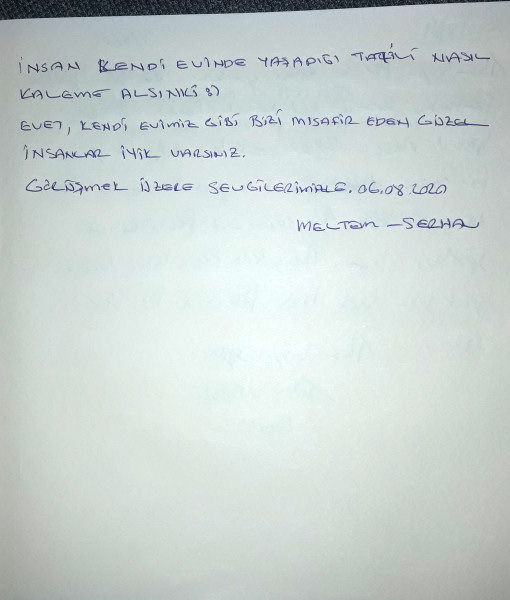 İNSAN KENDİ EVİNDE YAŞADIĞI TATİLİ NASIL
KALEME ALSINKİ :)
EVET, KENDİ EVİMİZ GİBİ BİZİ MİSAFİR EDEN GÜZEL
İNSANLAR İYİK VARSINIZ.
GÖRÜŞMEK ÜZERE SEVGİLERİMİZLE. 06.08.2020
MELTEM - SERHAN